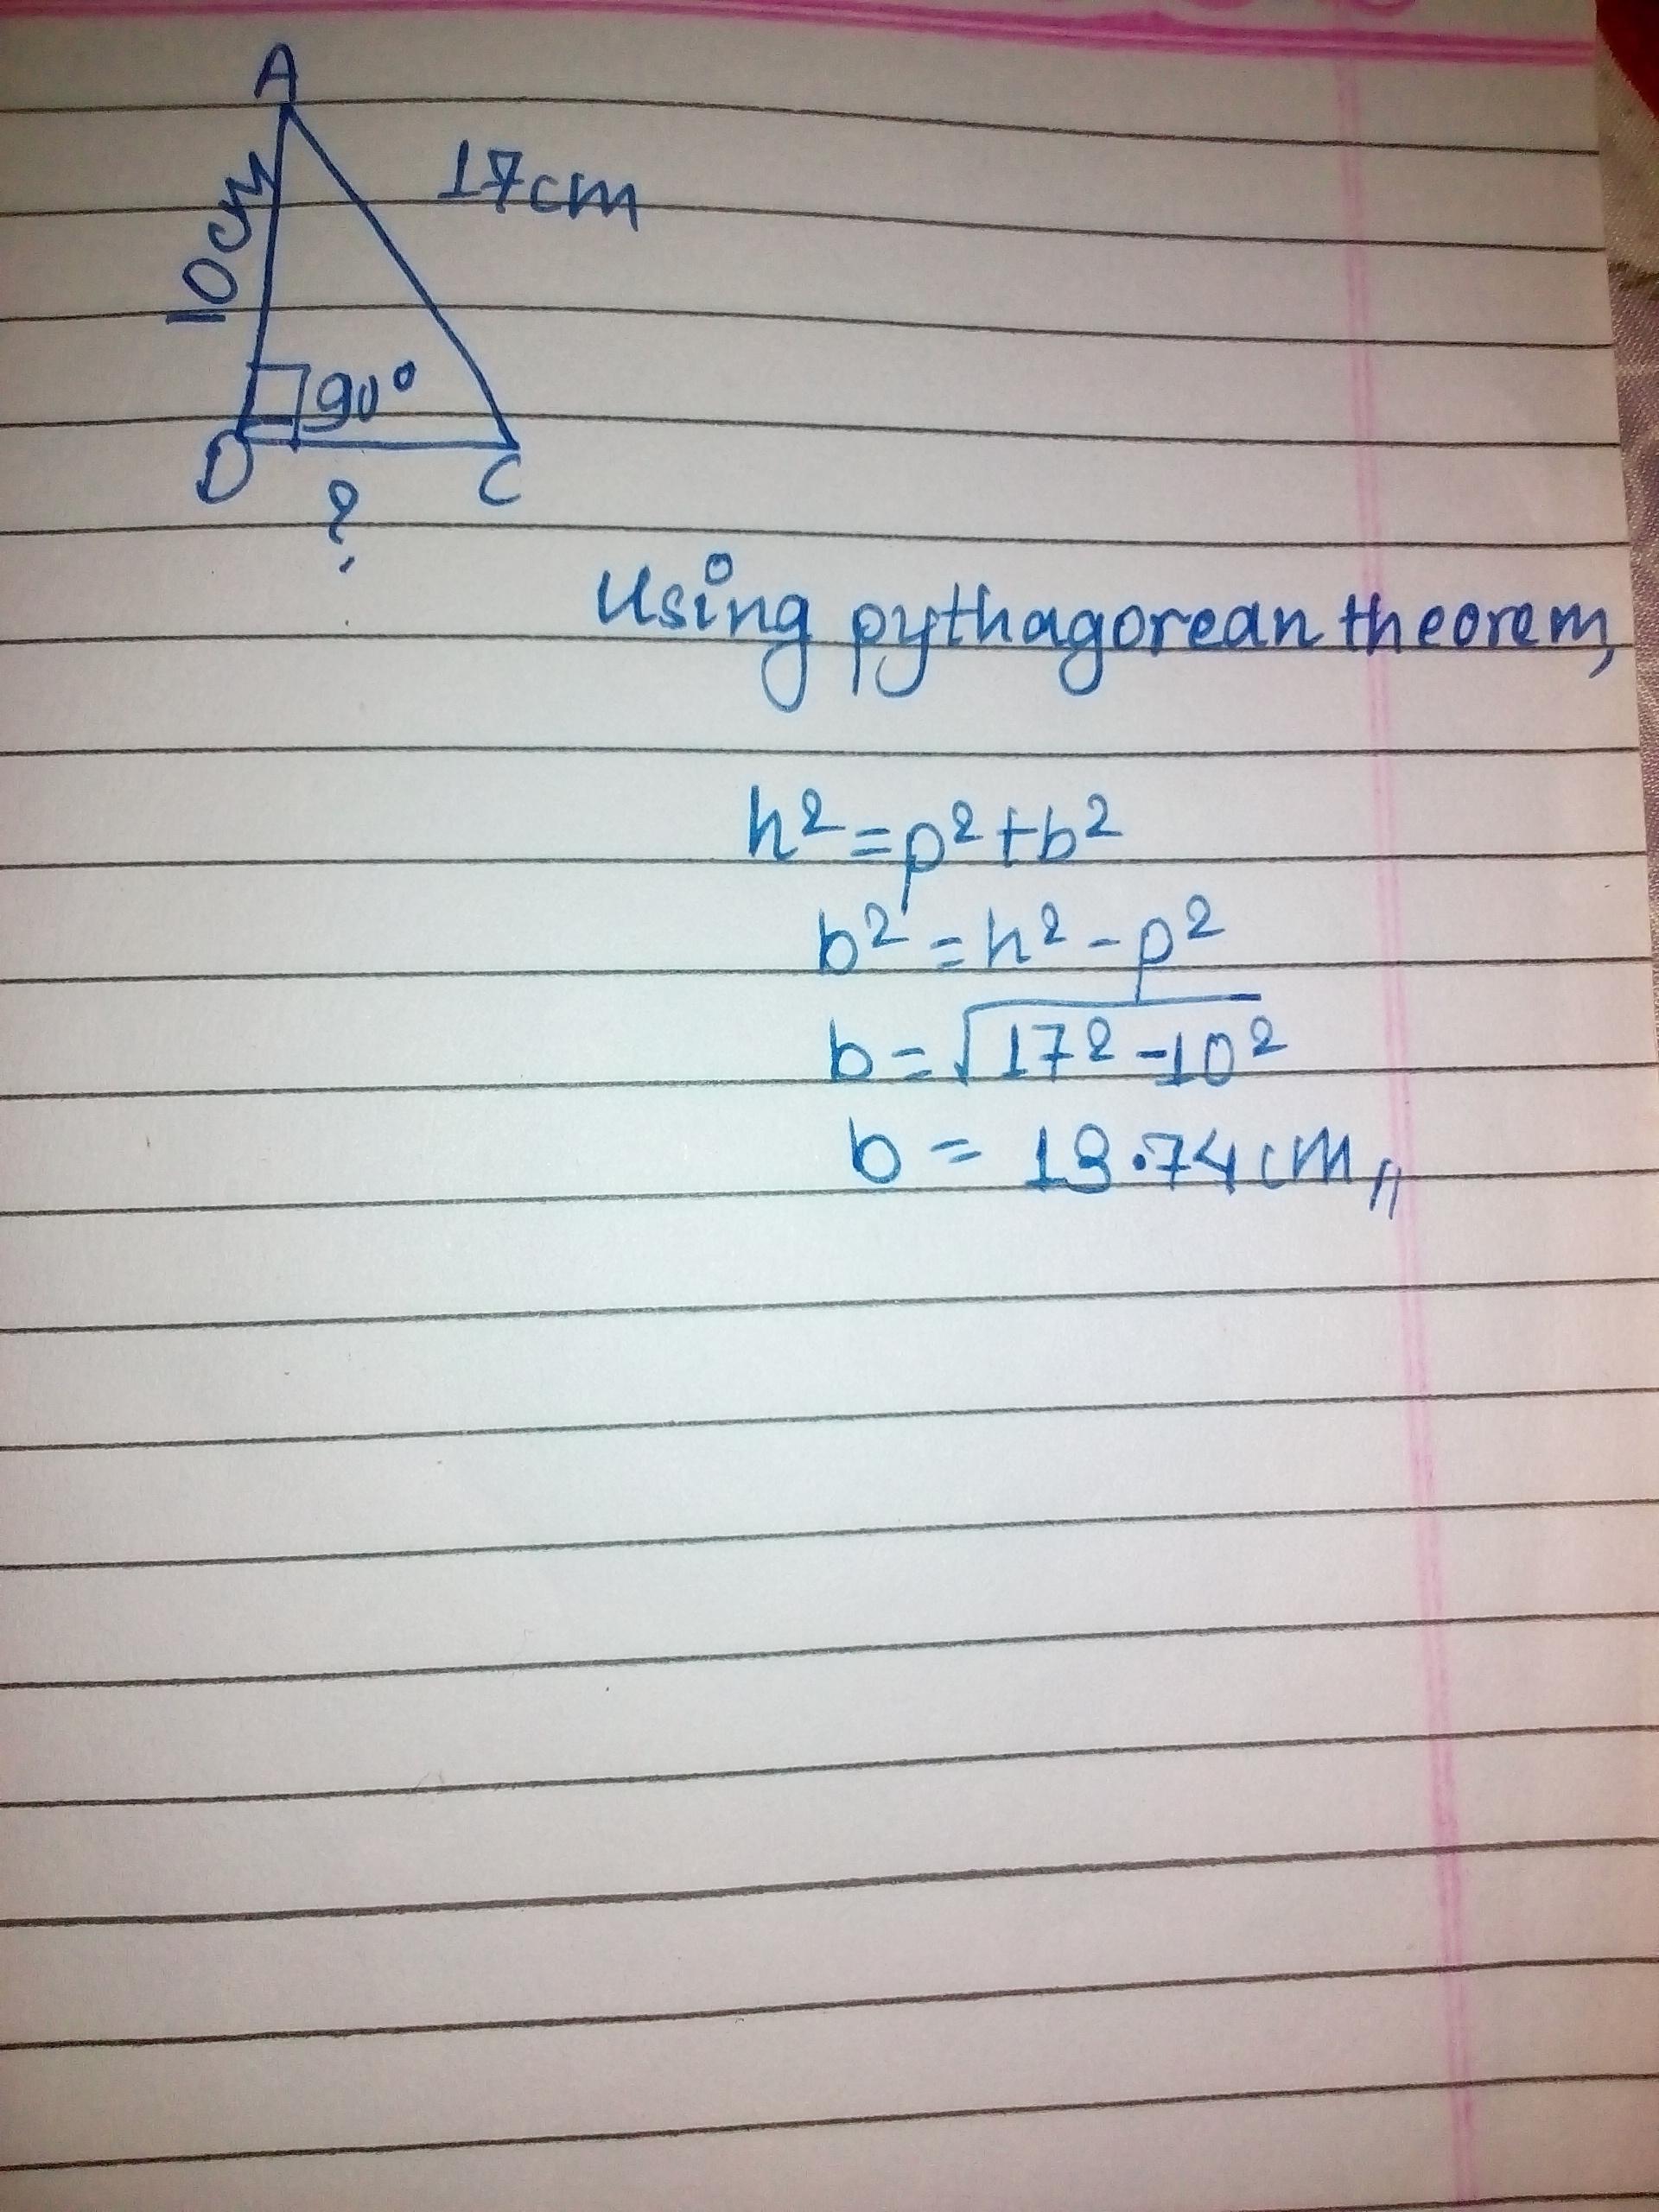 A
17cm
10cm
90°
D
C
?
Using pythagorean theorem,
h²=p²+b²
b²=h²-p²
b=√17²-10²
b= 13.74cm,,